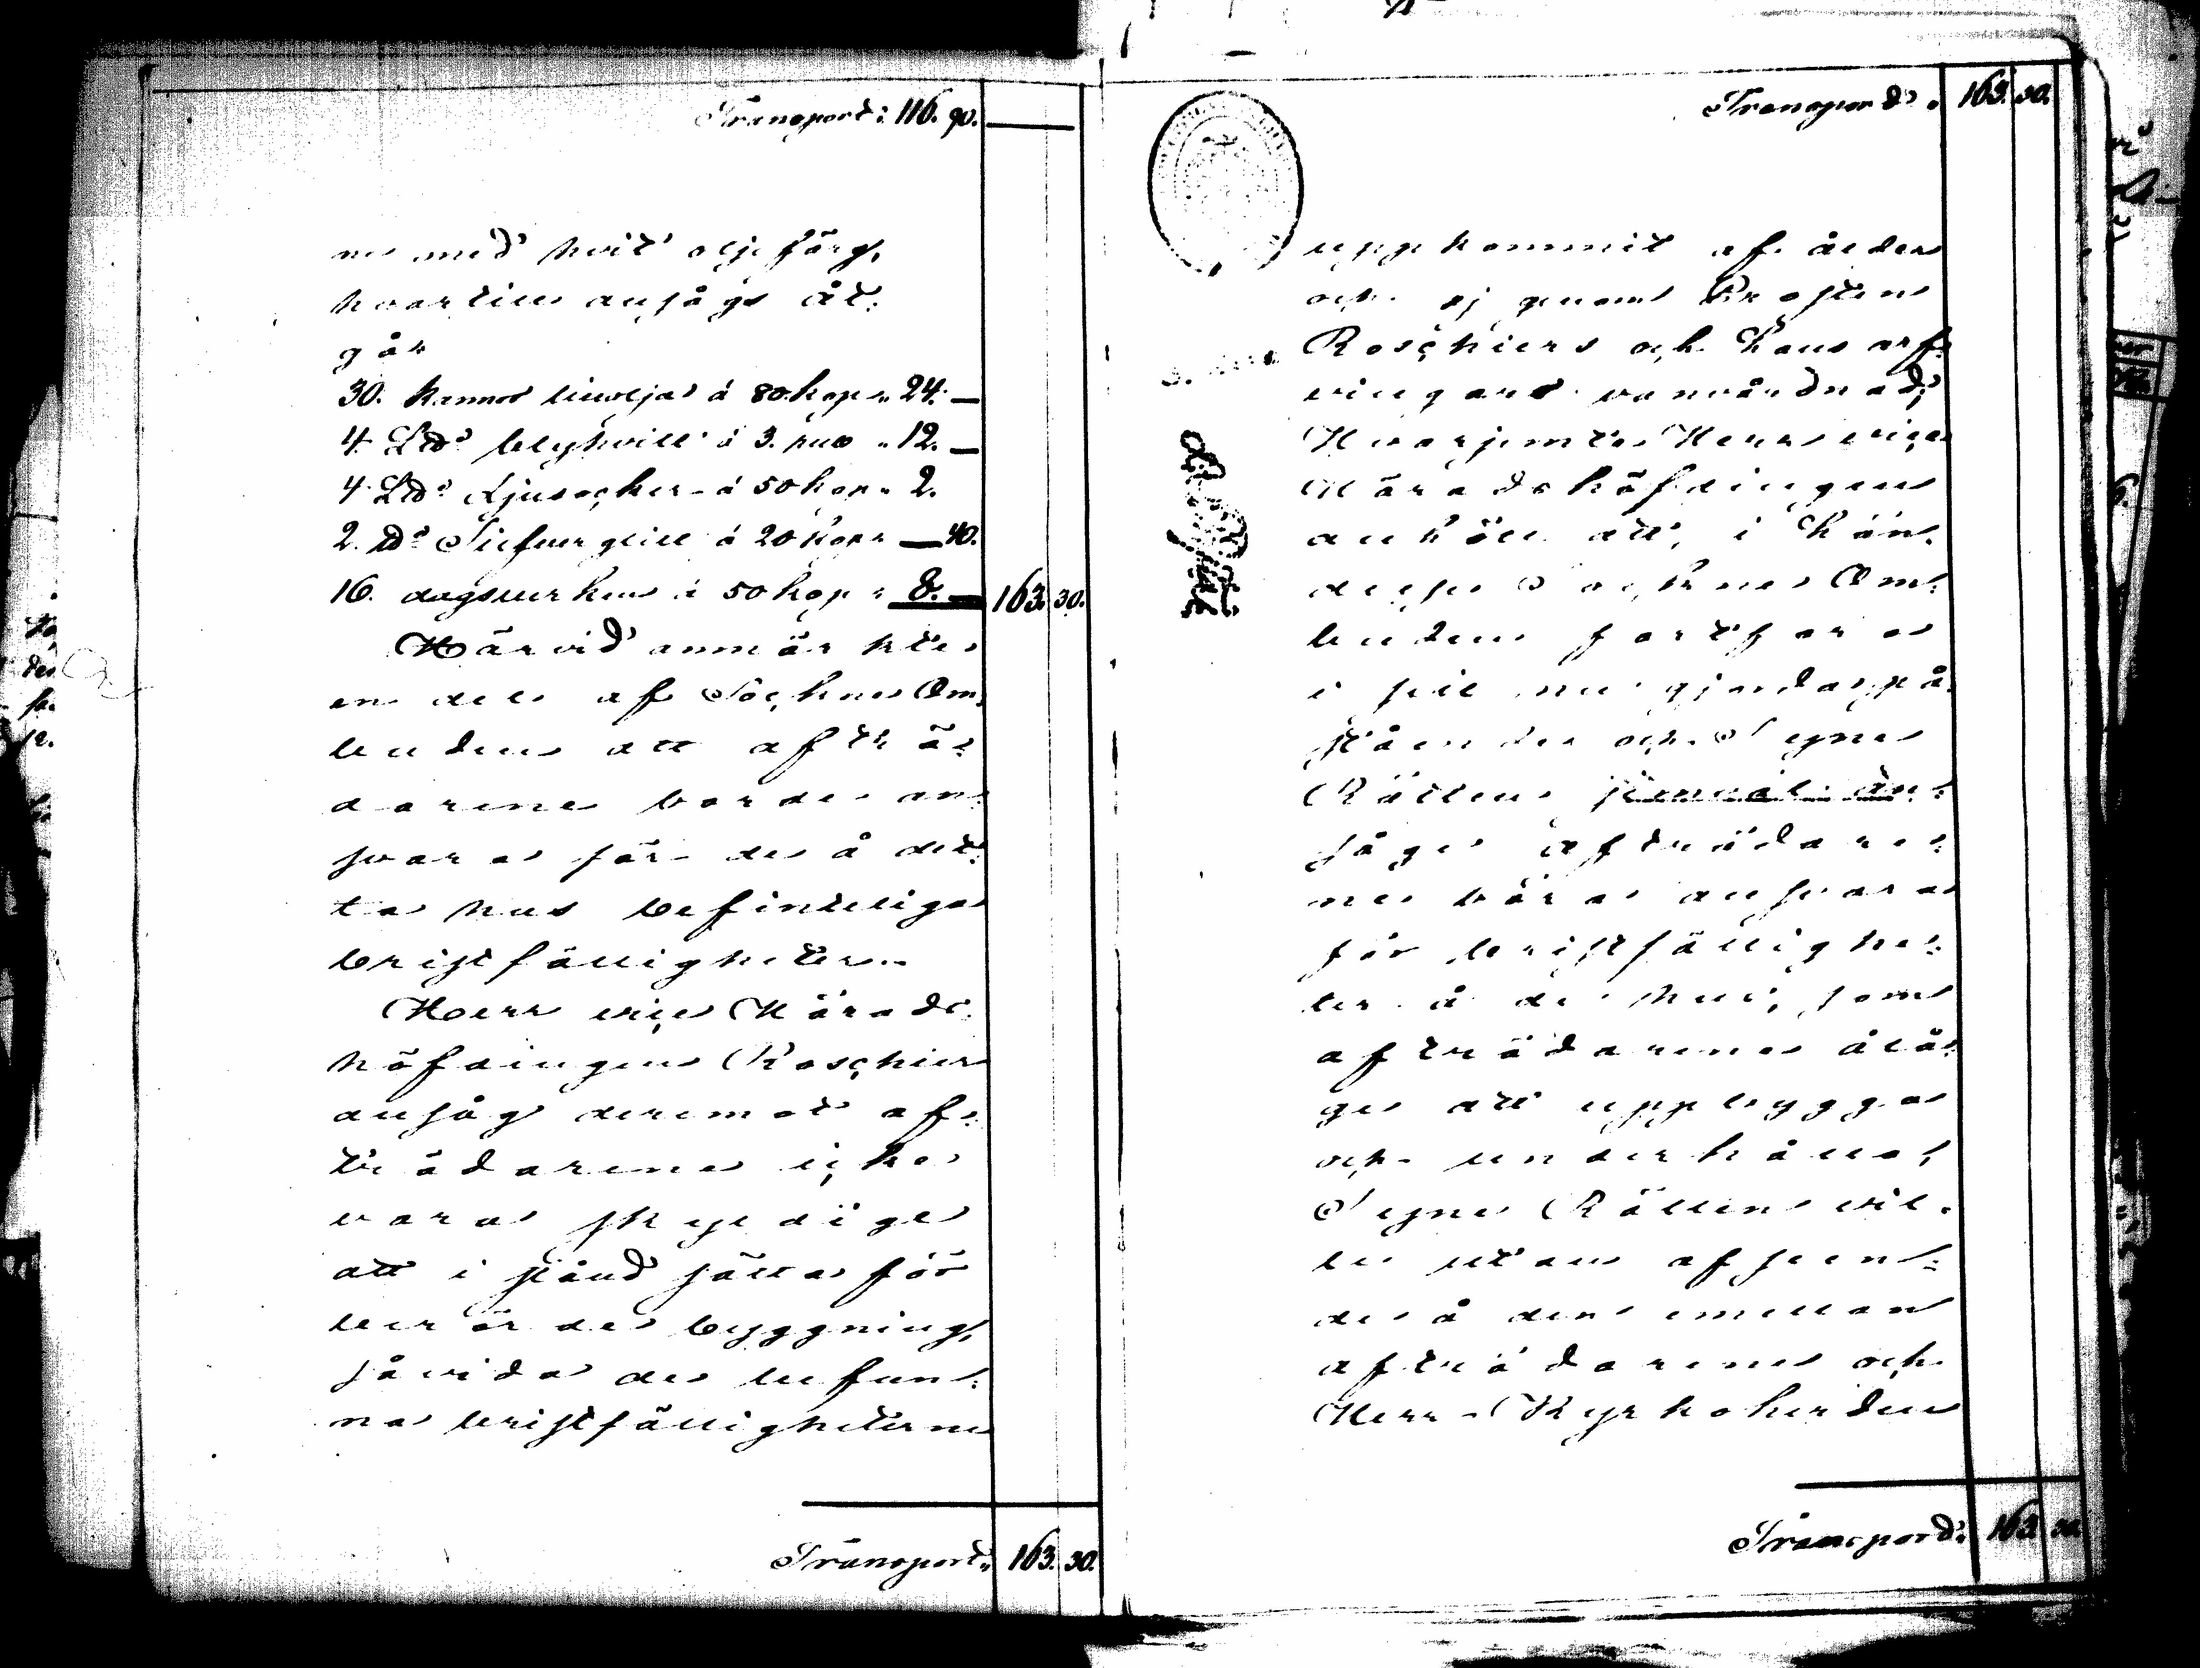 Transport: 116. 90.
ne med hvit oljefärg,
hvartill ansågs åt-
gå
30. kannor linolja á 80 kop. " 24. —
4. Ltt blyhvitt á 3. rub " 12. —
4. Ltt Ljusocker á 50 kop. " 2.
2. tt Silfverglitt á 20 kop. " — 40.
16. dagsverken á 50 kop " 8. — 163. 30.
Härvid anmärkte
en del af Sockne Om-
buden att afträ-
darene borde an-
svara för de å det-
ta hus befinteliga
bristfälligheter.
Herr vice Härads-
höfdingen Roschier
ansåg deremot af-
trädarene icke
vara skyldige
att i stånd sätta för
berörde byggning,
såvida de befun-
na bristfälligheterne
Transport: 163. 30.
Transport: 163. 30.
uppkommit af ålder
och ej genom Prosten
Roschiers och hans arf-
vingars vanvårdnad;
Hvarjemte Herr vice
Häradshöfdingen
anhöll att, i hän-
delse Sockne Om-
buden fortfara
i sitt nu gjorda på-
stående och Syne
Rätten jemväl an-
såge afträdare-
ne böra ansvara
för bristfällighe-
ter å de hus, som
afträdarene ålå-
ge att uppbygga
och underhålla,
Syne Rätten vil-
le utan afseen-
de å den emellan
afträdarene och
Herr Kyrkoherden
Transport: 163. 30.